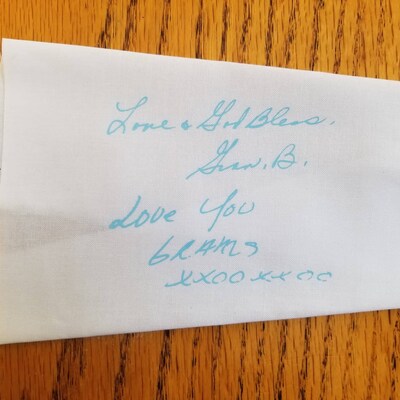 Love & God Bless.
Gran. B.
Love You
GRAMS
xxooxxoo